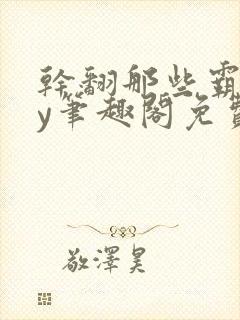 幹翻那些霸
y笔趣阁免費
敬澤昊